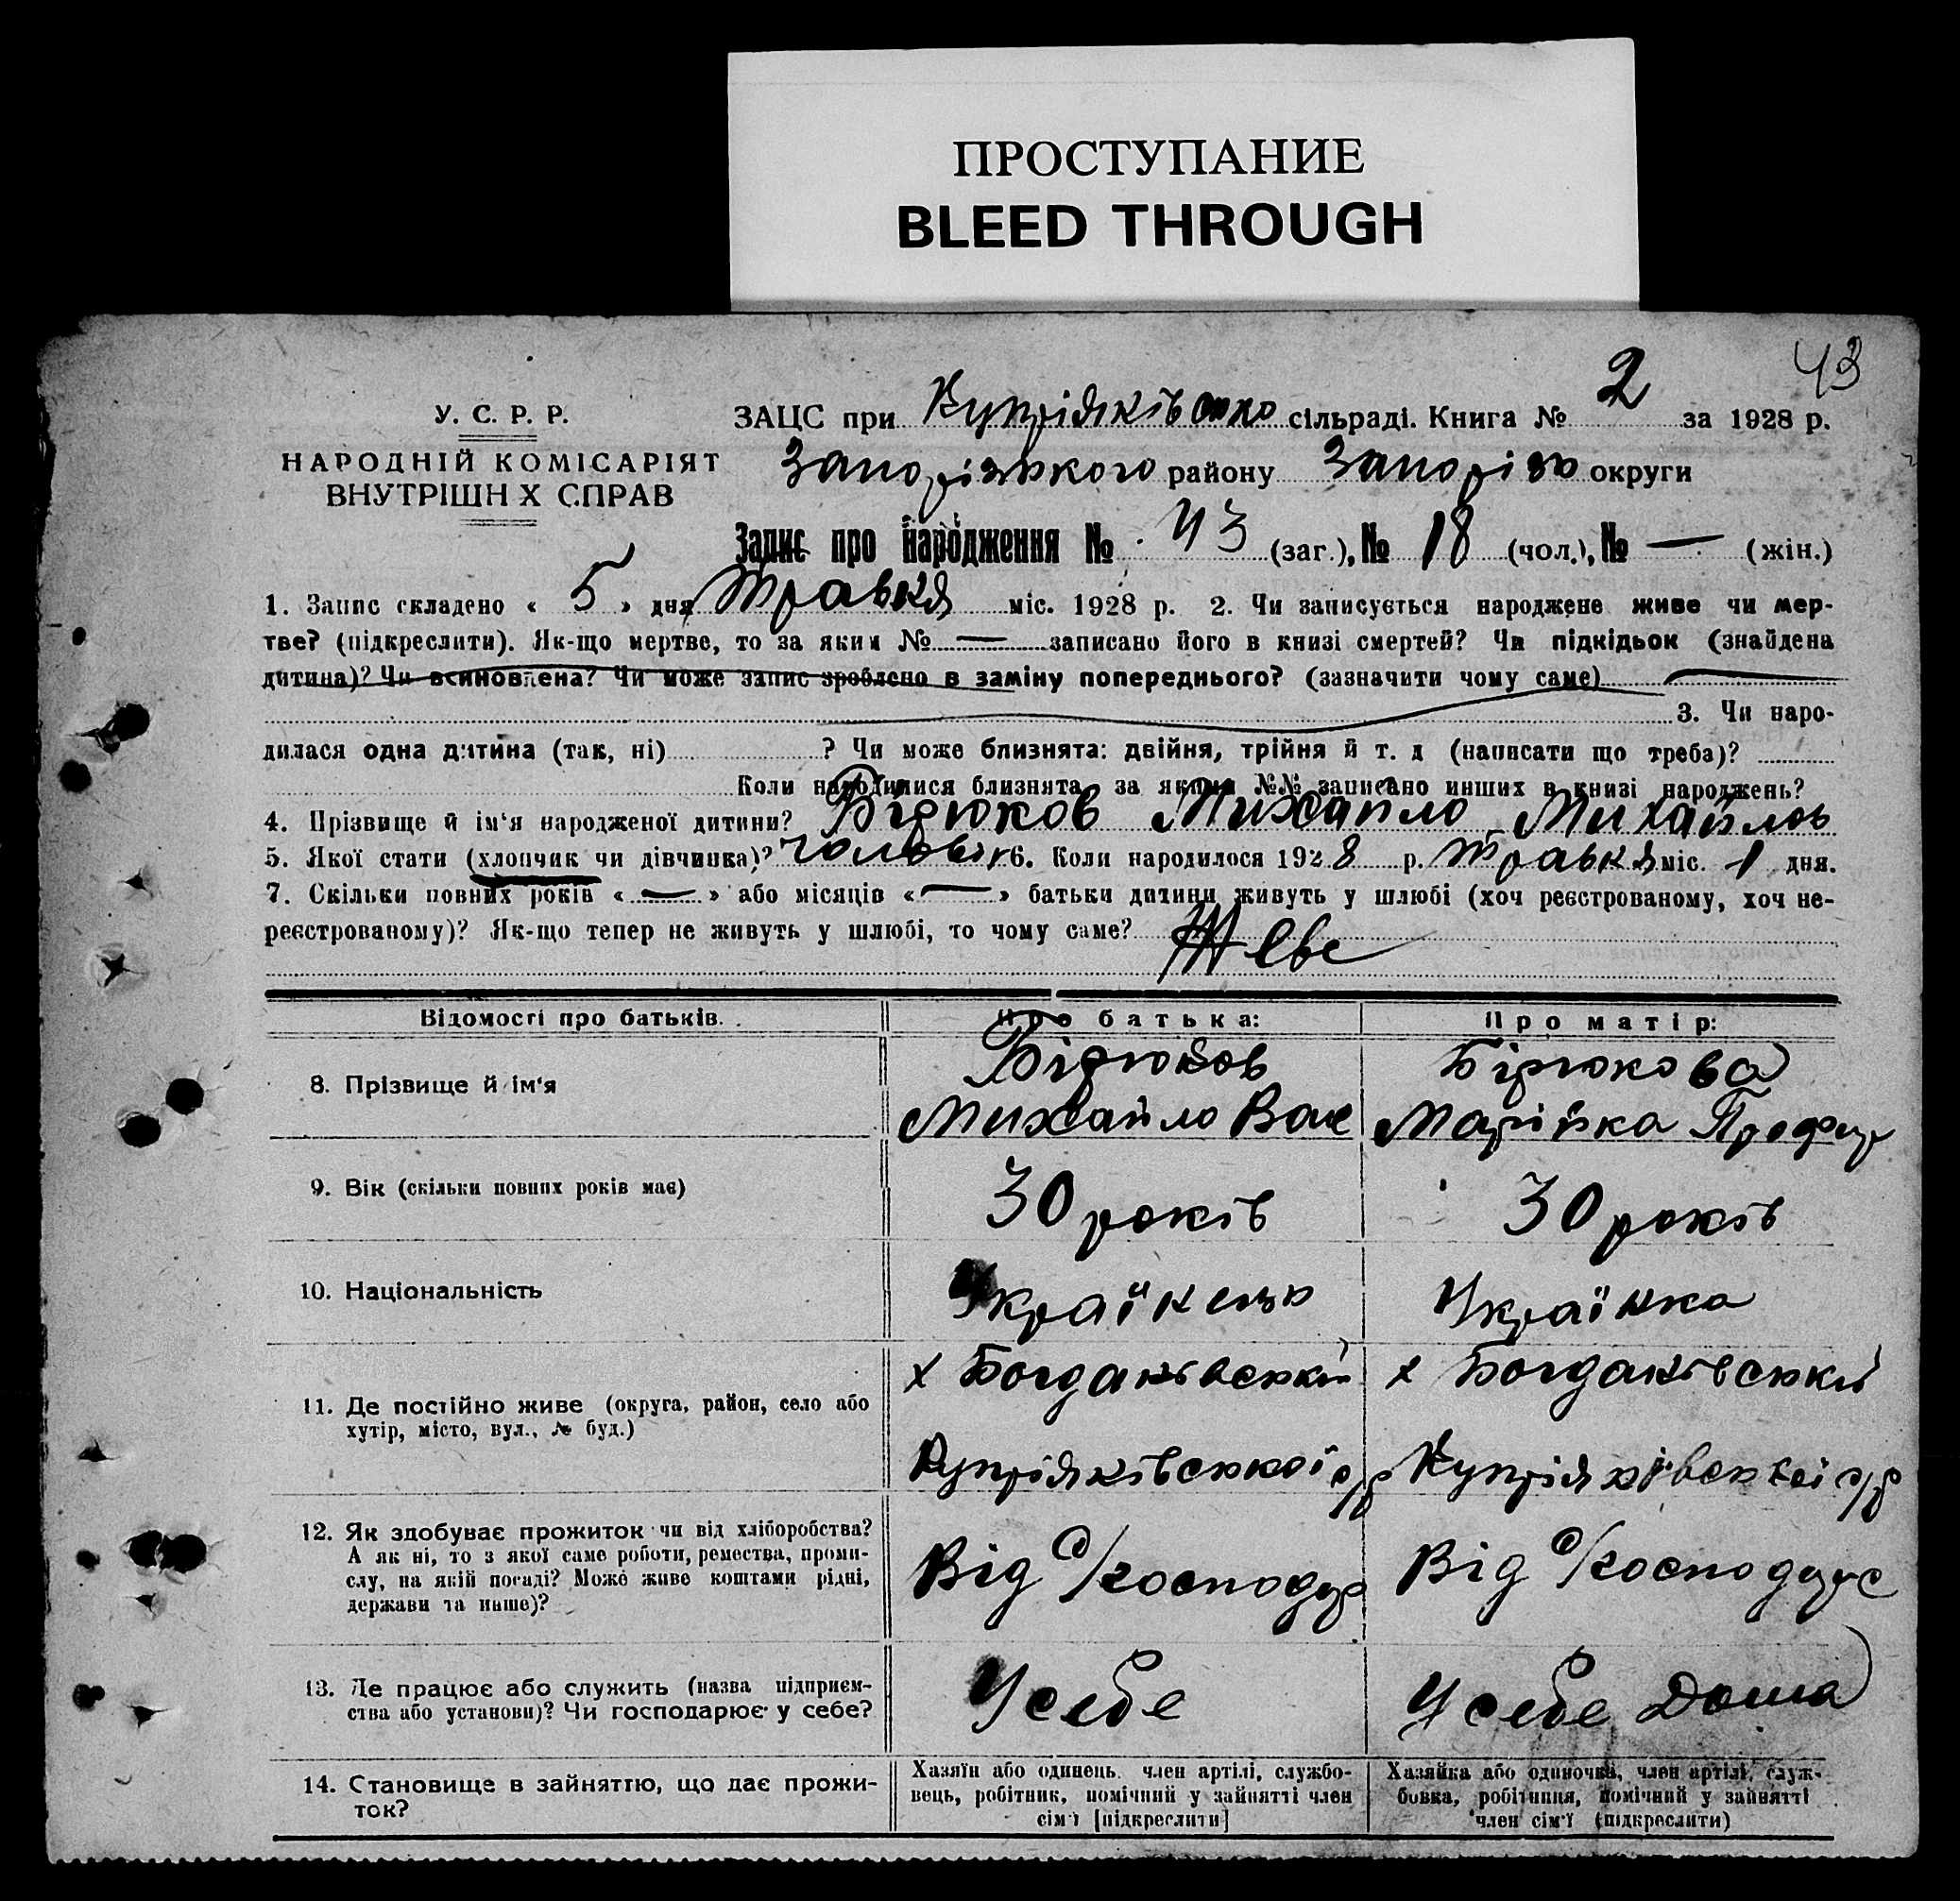 ПРОСТУПАНИЕ
BLEED THROUGH
43
У. С. Р. Р.
НАРОДНІЙ КОМІСАРІЯТ
ВНУТРІШН Х СПРАВ
ЗАЦС при Купріянківсько сільраді. Книга № 2 за 1928 р.
Запоріжського району Запоріж округи
Запис про народження № 43 (заг.), № 18 (чол.), № — (жін.)
1. Запис складено « 5 » дня Травня міс. 1928 р. 2. Чи записується народжене живе чи мер-
тве? (підкреслити). Як-що мертве, то за яким № — записано його в книзі смертей? Чи підкідьок (знайдена
дитина)? Чи всиновлена? Чи може запис зроблено в заміну попереднього? (зазначити чому саме)
3. Чи наро-
дилася одна дитина (так, ні) ? Чи може близнята: двійня, трійня й т. д (написати що треба)?
Коли народилися близнята, за якими №№ записано инших в книзі народжень?
4. Прізвище й ім'я народженої дитини? Бірюков Михайло Михайлов
5. Якої стати (хлопчик чи дівчинка)? чоловік 6. Коли народилося 1928 р. травня міс. 1 дня.
7. Скільки повних років « — » або місяців « — » батьки дитини живуть у шлюбі (хоч реєстрованому, хоч не-
реєстрованому)? Як-що тепер не живуть у шлюбі, то чому саме?
Відомості про батьків. Про батька: Про матір:
8. Прізвище й ім'я
Бірюков
Михайло Вас
Бірюкова
Марійка Профир
9. Вік (скільки повних років має) 30 років 30 років
10. Національність Українець Українка
11. Де постійно живе (округа, район, село або
хутір, місто, вул., № буд.)
х Богданівський
Купріянківської с/р
х Богданівський
Купріянківської с/р
12. Як здобуває прожиток чи від хліборобства?
А як ні, то з якої саме роботи, ремества, проми-
слу, на якій посаді? Може живе коштами рідні,
держави та инше)?
Від с/господар
Від с/господарс
13. Де працює або служить (назва підприєм-
ства або установи)? Чи господарює у себе?
У себе
У себе Дома
14. Становище в зайняттю, що дає прожи-
ток?
Хазяїн або одинець, член артілі, службо-
вець, робітник, помічний у зайнятті член
сім'ї [підкреслити]
Хазяйка або одиночка, член артілі, служ-
бовка, робітниця, помічний у зайнятті
член сім'ї (підкреслити)